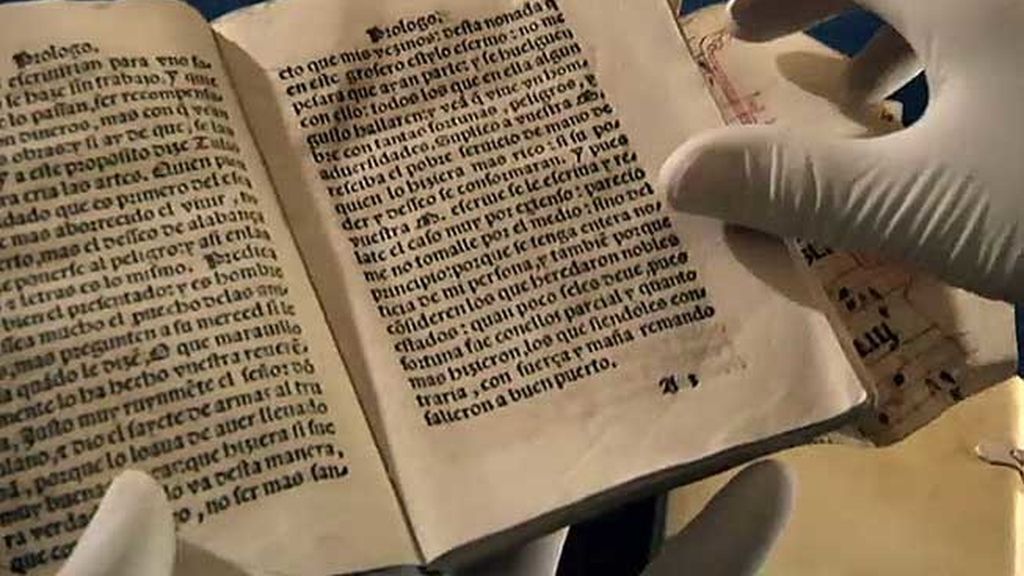 Prologo.
escriuirian para vno so-
se haze sin trabajo. Y quie
lo passan, ser recompensa
dineros, mas con q̃ vean
obras: y si ay de que, se las
y a este proposito dize Tulio
cria las artes. Quien pien
dado que es primero del esca
mas aborrecido el viuir, no
mas el desseo de alabança
ponerse al peligro: y assi en las
letras es lo mismo. Predica
bien el presentado: y es hombre
ssea mucho el puecho delas ani
mas pregunten a su merced si le
quãdo le dizẽ. O que marauillo
mente lo ha hecho vuestra reuerẽ.
Justo muy ruynmẽte el señor dõ
y dio el sayete de armas al tru
porque lo loaua de auer lleuado
muy buenas que hiziera si fue
ra verdad lo va desta manera,
no ser mas san
que
Prologo.
cto que mis vezinos: desta nonada q̃
en este grosero estylo escriuo: no me
pesara que ayan parte: y se huelguen
con ello: todos los que en ella algun
gusto hallaren: y veã q̃ viue vn hom
bre con tantas fortunas, peligros, y
aduersidades. Suplico a vuestra M.
resciba el pobre seruicio de mano de
quien lo hiziera mas rico: si su po
der y desseo se conformaran. Y pues
vuestra M. escriue se le escriua y re
late el caso muy por extenso: parecio
me no tomalle por el medio: sino del
principio: porque se tenga entera no
ticia de mi persona, y tambiẽ porque
cõsideren los que heredaron nobles
estados: quan poco seles deue, pues
fortuna fue conellos parcial y quanto
mas hizieron, los que siendoles con
traria, con fuerça y maña remando
salieron a buen puerto.
A 3